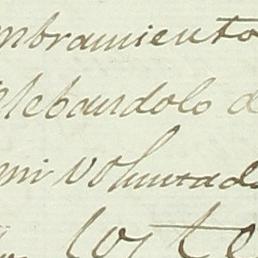 mbramiento
llebandolo a
mi voluntad